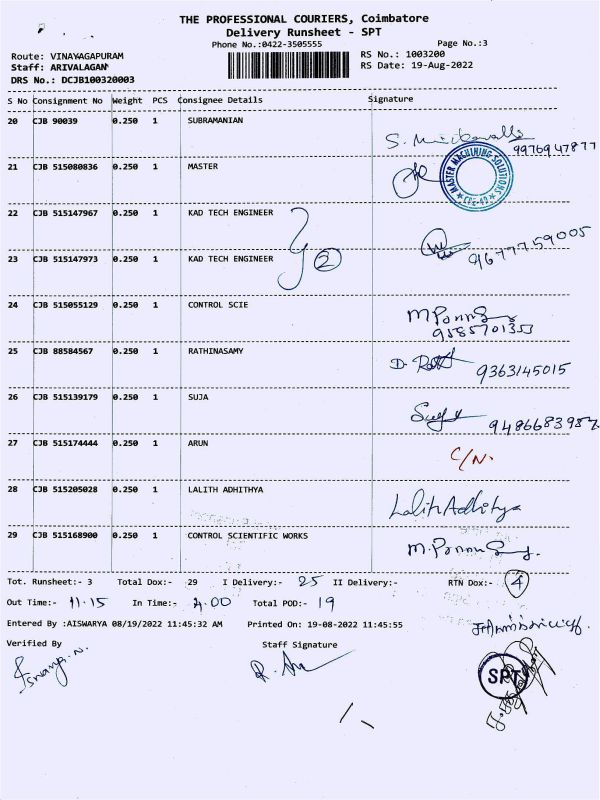 THE PROFESSIONAL COURIERS, Coimbatore
Delivery Runsheet - SPT
Phone No.:0422-3505555
Page No.:3
Route: VINAYAGAPURAM
RS No.: 1003200
Staff: ARIVALAGAN
RS Date: 19-Aug-2022
DRS No.: DCJB100320003
S No Consignment No Weight PCS Consignee Details Signature
20 CJB 90039 0.250 1 SUBRAMANIAN
9976947877
21 CJB 515080836 0.250 1 MASTER
MASTER MACHINING SOLUTIONS
CBE-49
22 CJB 515147967 0.250 1 KAD TECH ENGINEER
23 CJB 515147973 0.250 1 KAD TECH ENGINEER 2 9677759005
24 CJB 515055129 0.250 1 CONTROL SCIE
9585701353
25 CJB 88584567 0.250 1 RATHINASAMY 9363145015
26 CJB 515139179 0.250 1 SUJA 9486683987
27 CJB 515174444 0.250 1 ARUN C/N.
28 CJB 515205028 0.250 1 LALITH ADHITHYA Lalith Adhitya
29 CJB 515168900 0.250 1 CONTROL SCIENTIFIC WORKS
Tot. Runsheet:- 3 Total Dox:- 29 I Delivery:- 25 II Delivery:- RTN Dox:- 4
Out Time:- 11.15 In Time:- 4.00 Total POD:- 19
Entered By :AISWARYA 08/19/2022 11:45:32 AM Printed On: 19-08-2022 11:45:55
Verified By Staff Signature
SPT